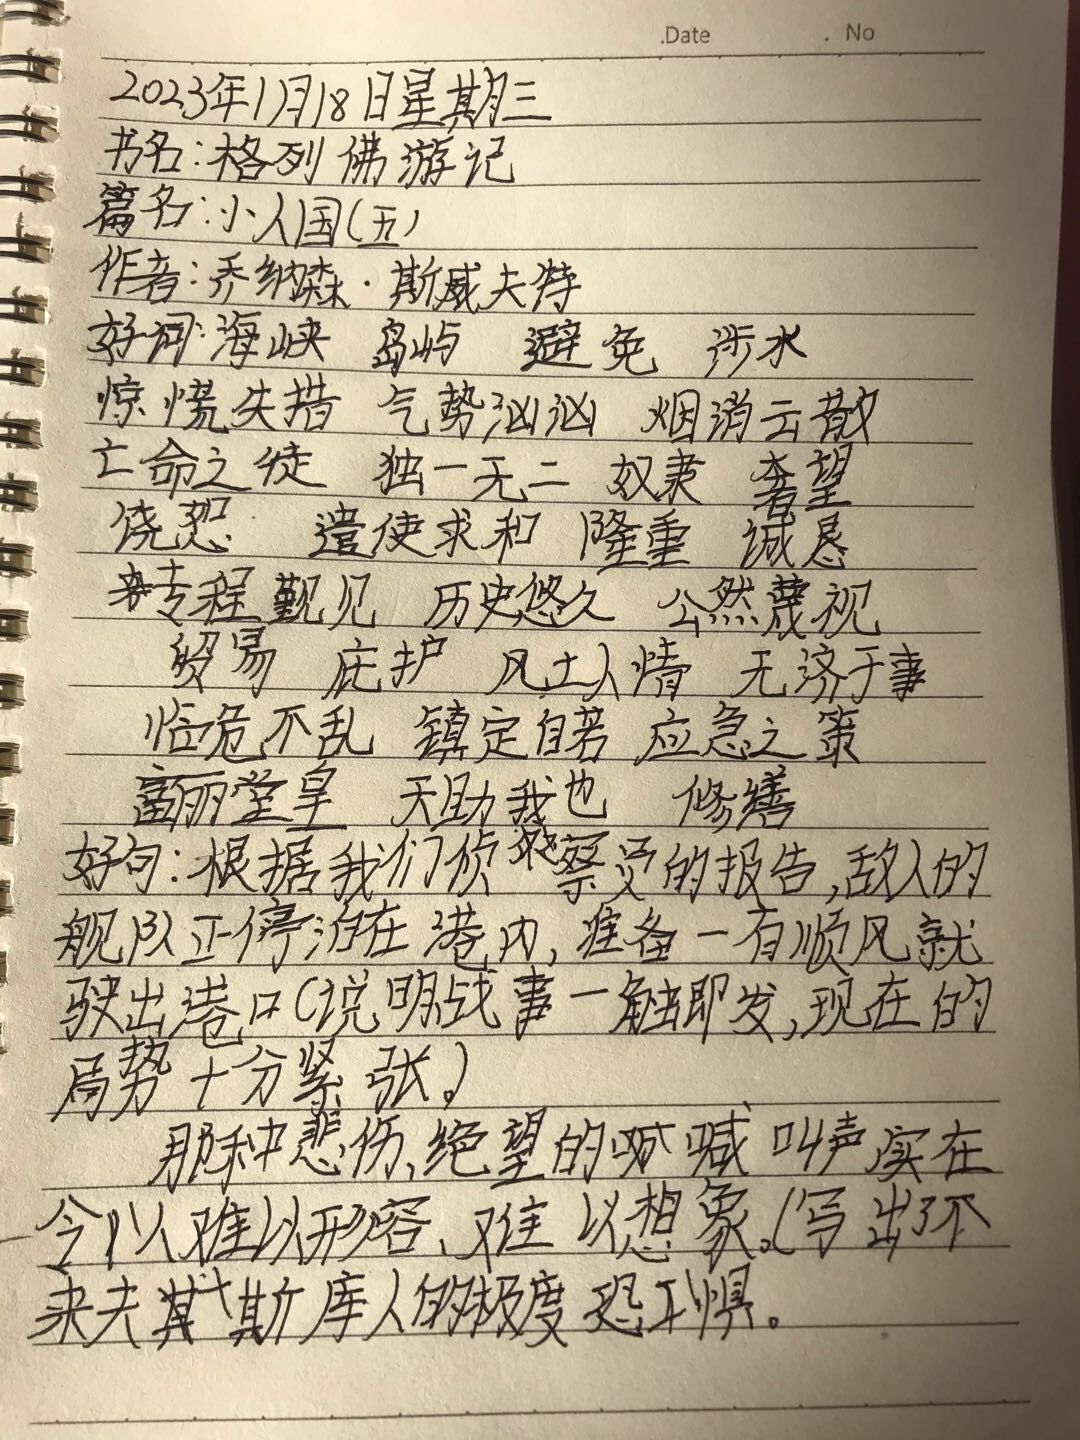 .Date . No
2023年1月18日星期三
书名:格列佛游记
篇名:小人国(五)
作者:乔纳森·斯威夫特
好词:海峡 岛屿 避免 涉水
惊慌失措 气势汹汹 烟消云散
亡命之徒 独一无二 奴隶 奢望
饶恕 遣使求和 隆重 诚恳
专程觐见 历史悠久 公然蔑视
贸易 庇护 风土人情 无济于事
临危不乱 镇定自若 应急之策
富丽堂皇 天助我也 修缮
好句:根据我们侦察员的报告,敌人的
舰队正停泊在港内,准备一有顺风就
驶出港口(说明战事一触即发,现在的
局势十分紧张。)
那种悲伤、绝望的喊叫声实在
令人难以形容、难以想象。(写出了不
来夫其斯库人的极度恐惧。